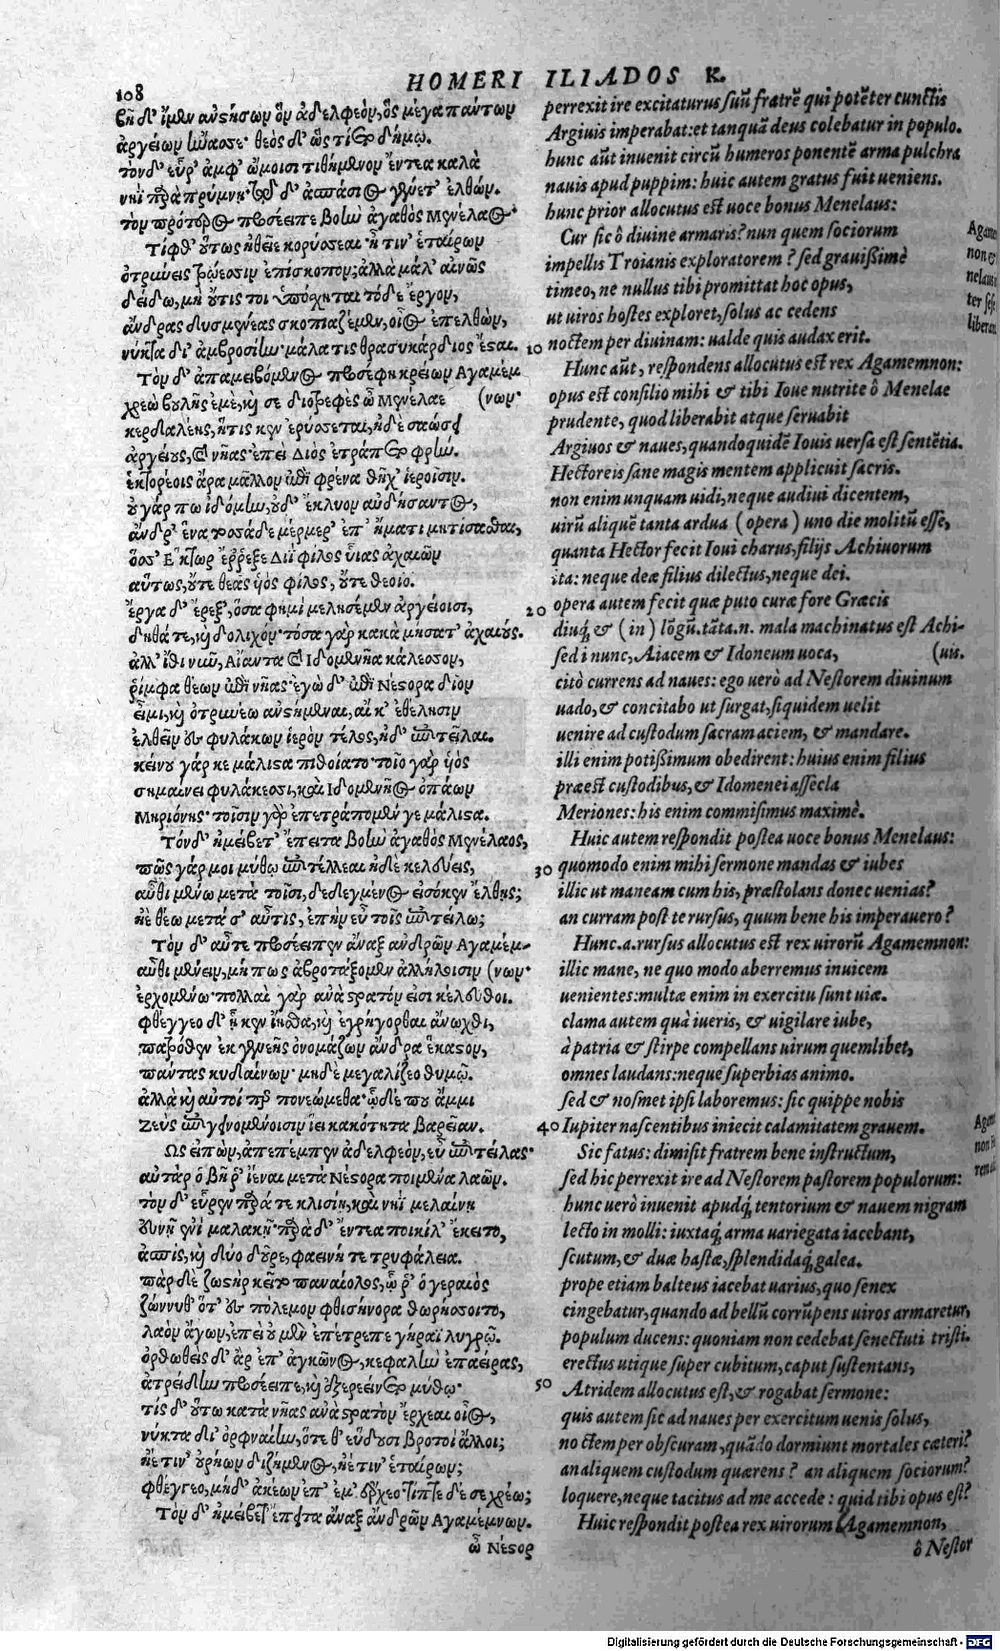 108
HOMERI ILIADOS K.
βῆ δ' ἴμεν ἀνστήσων ὃν ἀδελφεὸν, ὃς μέγα πάντων
ἀργείων ἤνασσε· θεὸς δ' ὣς τίετο δήμῳ.
τὸν δ' εὗρ' ἀμφ' ὤμοισι τιθήμενον ἔντεα καλὰ
νηῒ παρὰ πρύμνῃ· τῷ δ' ἀσπάσιος γένετ' ἐλθών.
τὸν πρότερος προσέειπε βοὴν ἀγαθὸς Μενέλαος·
Τίφθ' οὕτως ἠθεῖε κορύσσεαι· ἦ τιν' ἑταίρων
ὀτρυνεις τρώεσσιν ἐπίσκοπον; ἀλλὰ μάλ' αἰνῶς
δείδω, μὴ οὔτις τοι ὑπόσχηται τόδε ἔργον,
ἄνδρας δυσμενέας σκοπιαζέμεν, οἶος ἐπελθὼν,
νύκτα δι' ἀμβροσίην· μάλα τις θρασυκάρδιος ἔσται.
Τὸν δ' ἀπαμειβόμενος προσέφη κρείων Αγαμέμ
χρεὼ βουλῆς ἐμὲ, καὶ σὲ διοτρεφὲς ὦ Μενέλαε (νων·
κερδαλέης, ἥτις κεν ἐρύσσεται, ἠδὲ σαώσει
ἀργείους, καὶ νῆας· ἐπεὶ Διὸς ἐτράπετο φρήν.
ἑκτορέοις ἄρα μᾶλλον ἐπὶ φρένα θῆχ' ἱεροῖσιν.
οὐ γάρ πω ἰδόμην, οὐδ' ἔκλυον αὐδήσαντος,
ἄνδρ' ἕνα τοσσάδε μέρμερ' ἐπ' ἤματι μητίσασθαι,
ὅσσ' Εκτωρ ἔρρεξε Διῒ φίλος υἷας ἀχαιῶν
αὔτως, οὔτε θεᾶς υἱὸς φίλος, οὔτε θεοῖο.
ἔργα δ' ἔρεξ', ὅσα φημὶ μελησέμεν ἀργείοισι,
δηθά τε, καὶ δολιχόν· τόσα γὰρ κακὰ μήσατ' ἀχαιούς.
ἀλλ' ἴθι νῦν, Αἴαντα καὶ Ιδομενῆα κάλεσσον,
ῥίμφα θέων ἐπὶ νῆας· ἐγὼ δ' ἐπὶ Νέστορα δῖον
εἶμι, καὶ ὀτρυνέω ἀνστήμεναι, αἴ κ' ἐθέλησιν
ἐλθεῖν ἐς φυλάκων ἱερὸν τέλος, ἠδ' ἐπιτεῖλαι.
κείνου γάρ κε μάλιστα πιθοίατο· τοῖο γὰρ υἱὸς
σημαίνει φυλάκεσσι, καὶ Ιδομενῆος ὀπάων
Μηριόνης· τοῖσιν γὰρ ἐπετράπομέν γε μάλιστα.
Τόνδ' ἠμείβετ' ἔπειτα βοὴν ἀγαθὸς Μενέλαος,
πῶς γάρ μοι μύθῳ ἐπιτέλλεαι ἠδὲ κελεύεις,
αὖθι μένω μετὰ τοῖσι, δεδεγμένος εἰσόκεν ἔλθῃς;
ἠὲ θέω μετὰ σ' αὖτις, ἐπὴν εὖ τοῖς ἐπιτείλω;
Τὸν δ' αὖτε προσέειπεν ἄναξ ἀνδρῶν Αγαμέμ-
αὖθι μένειν, μή πως ἀβροτάξομεν ἀλλήλοισιν (νων·
ἐρχομένω· πολλαὶ γὰρ ἀνὰ στρατόν εἰσι κέλευθοι.
φθέγγεο δ' ᾗ κεν ἴῃσθα, καὶ ἐγρήγορθαι ἄνωχθι,
πατρόθεν ἐκ γενεῆς ὀνομάζων ἄνδρα ἕκαστον,
πάντας κυδαίνων· μηδὲ μεγαλίζεο θυμῷ.
ἀλλὰ καὶ αὐτοί περ πονεώμεθα· ὧδέ που ἄμμι
Ζεὺς ἐπὶ γεινομένοισιν ἵει κακότητα βαρεῖαν.
Ως εἰπὼν, ἀπέπεμπεν ἀδελφεὸν, εὖ ἐπιτείλας·
αὐτὰρ ὁ βῆ ῥ' ἰέναι μετὰ Νέστορα ποιμένα λαῶν.
τὸν δ' εὗρεν παρά τε κλισίῃ, καὶ νηῒ μελαίνῃ
εὐνῇ ἐνὶ μαλακῇ· παρὰ δ' ἔντεα ποικίλ' ἔκειτο,
ἀσπὶς, καὶ δύο δοῦρε, φαεινή τε τρυφάλεια.
πὰρ δὲ ζωστὴρ κεῖτο παναίολος, ᾧ ῥ' ὁ γεραιὸς
ζώννυθ' ὅτ' ἐς πόλεμον φθισήνορα θωρήσσοιτο,
λαὸν ἄγων, ἐπεὶ οὐ μὲν ἐπέτρεπε γήραϊ λυγρῷ.
ὀρθωθεὶς δ' ἂρ ἐπ' ἀγκῶνος, κεφαλὴν ἐπαείρας,
ἀτρείδην προσέειπε, καὶ ἐξερεείνετο μύθῳ·
τίς δ' οὕτω κατὰ νῆας ἀνὰ στρατὸν ἔρχεαι οἶος,
νύκτα δι' ὀρφναίην, ὅτε θ' εὕδουσι βροτοὶ ἄλλοι;
ἠέ τιν' οὐρήων διζήμενος, ἤ τιν' ἑταίρων;
φθέγγεο, μηδ' ἀκέων ἐπ' ἔμ' ἔρχεο· τίπτε δέ σε χρέω;
Τὸν δ' ἠμείβετ' ἔπειτα ἄναξ ἀνδρῶν Αγαμέμνων.
ὦ Νέστορ
perrexit ire excitaturus suũ fratrẽ qui potẽter cunctis
Argiuis imperabat: et tanquã deus colebatur in populo.
hunc aũt inuenit circũ humeros ponentẽ arma pulchra
nauis apud puppim: huic autem gratus fuit ueniens.
hunc prior allocutus est uoce bonus Menelaus:
Cur sic ô diuine armaris? nun quem sociorum
impellis Troianis exploratorem? sed grauissimè
timeo, ne nullus tibi promittat hoc opus,
ut uiros hostes exploret, solus ac cedens
10 noctem per diuinam: ualde quis audax erit.
Hunc aũt, respondens allocutus est rex Agamemnon:
opus est consilio mihi & tibi Ioue nutrite ô Menelae
prudente, quod liberabit atque seruabit
Argiuos & naues, quandoquidẽ Iouis uersa est sentẽtia.
Hectoreis sane magis mentem applicuit sacris.
non enim unquam uidi, neque audiui dicentem,
uirũ aliquẽ tanta ardua (opera) uno die molitũ esse,
quanta Hector fecit Ioui charus, filijs Achiuorum
ita: neque deæ filius dilectus, neque dei.
20 opera autem fecit quæ puto curæ fore Græcis
diuq́, & (in) lõgũ. tãta .n. mala machinatus est Achi-
sed i nunc, Aiacem & Idoneum uoca, (uis.
citò currens ad naues: ego uerò ad Nestorem diuinum
uado, & concitabo ut surgat, siquidem uelit
uenire ad custodum sacram aciem, & mandare.
illi enim potissimum obedirent: huius enim filius
præest custodibus, & Idomenei assecla
Meriones: his enim commisimus maximè.
Huic autem respondit postea uoce bonus Menelaus:
30 quomodo enim mihi sermone mandas & iubes
illic ut maneam cum his, præstolans donec uenias?
an curram post te rursus, quum bene his imperauero?
Hunc .a. rursus allocutus est rex uirorũ Agamemnon:
illic mane, ne quo modo aberremus inuicem
uenientes: multæ enim in exercitu sunt uiæ.
clama autem quà iueris, & uigilare iube,
à patria & stirpe compellans uirum quemlibet,
omnes laudans: neque superbias animo.
sed & nosmet ipsi laboremus: sic quippe nobis
40 Iupiter nascentibus iniecit calamitatem grauem.
Sic fatus: dimisit fratrem bene instructum,
sed hic perrexit ire ad Nestorem pastorem populorum:
hunc uerò inuenit apudq́, tentorium & nauem nigram
lecto in molli: iuxtaq́, arma uariegata iacebant,
scutum, & duæ hastæ, splendidaq́, galea.
prope etiam balteus iacebat uarius, quo senex
cingebatur, quando ad bellũ corrũpens uiros armaretur,
populum ducens: quoniam non cedebat senectuti tristi.
erectus utique super cubitum, caput sustentans,
50 Atridem allocutus est, & rogabat sermone:
quis autem sic ad naues per exercitum uenis solus,
noctem per obscuram, quãdo dormiunt mortales cæteri?
an aliquem custodum quærens? an aliquem sociorum?
loquere, neque tacitus ad me accede: quid tibi opus est?
Huic respondit postea rex uirorum Agamemnon,
ô Nestor
Agame
non &
nelaus
ter sese
liberan
Agame
non
Digitalisierung gefördert durch die Deutsche Forschungsgemeinschaft - DFG